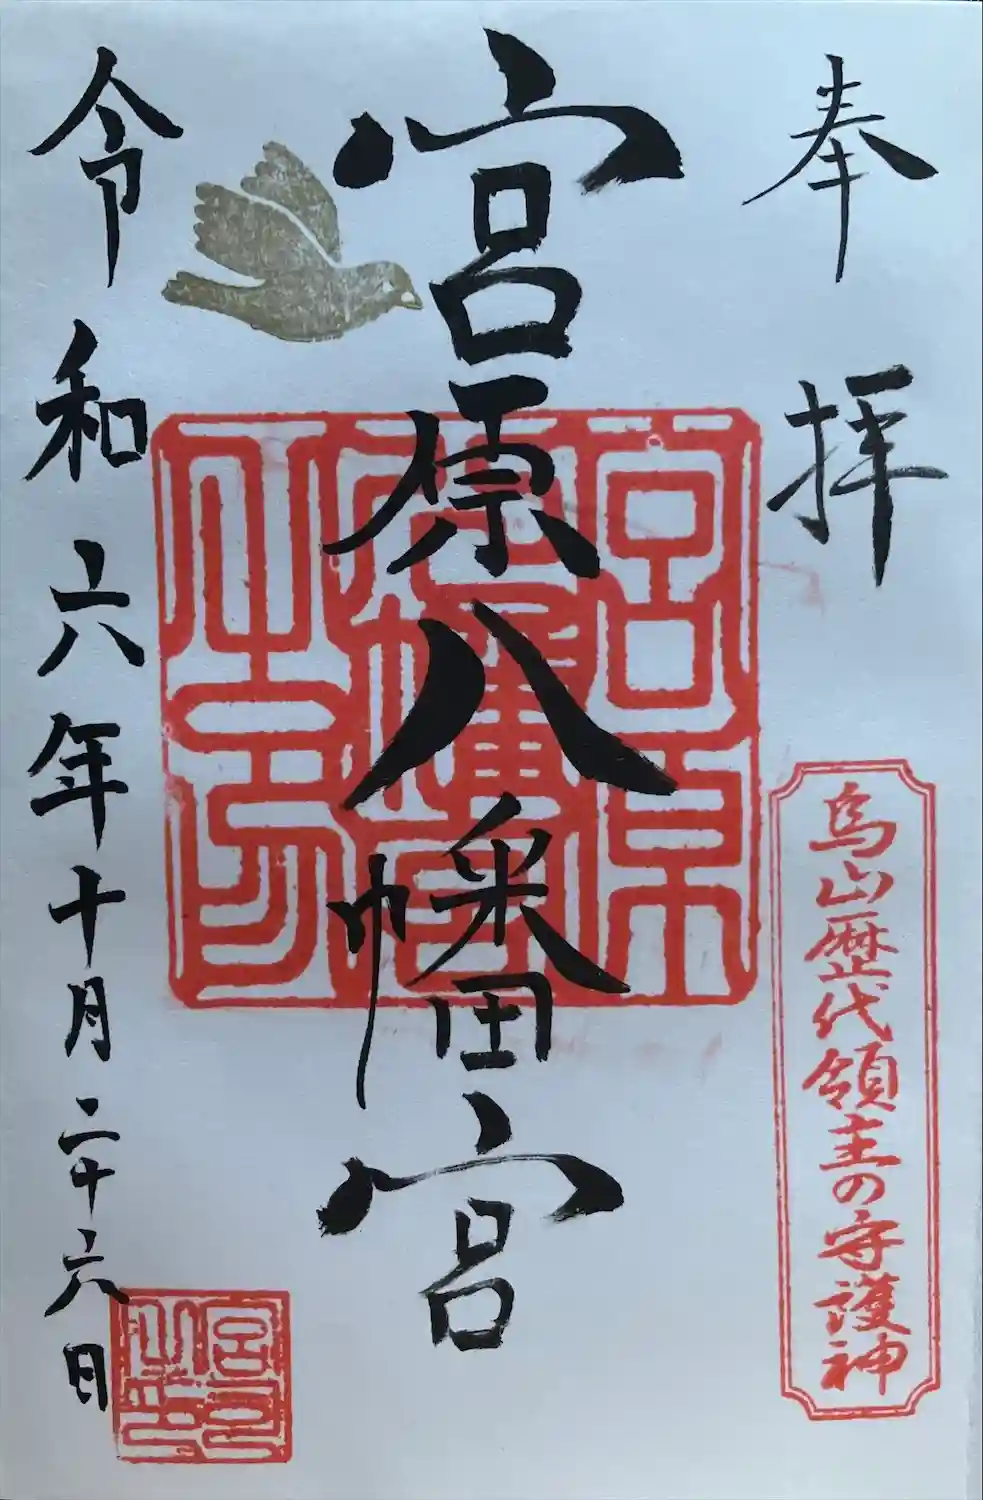 奉拝
烏山歴代領主の守護神
宮原八幡宮
宮原八幡宮之印
令和六年十月二十六日
宮司之印